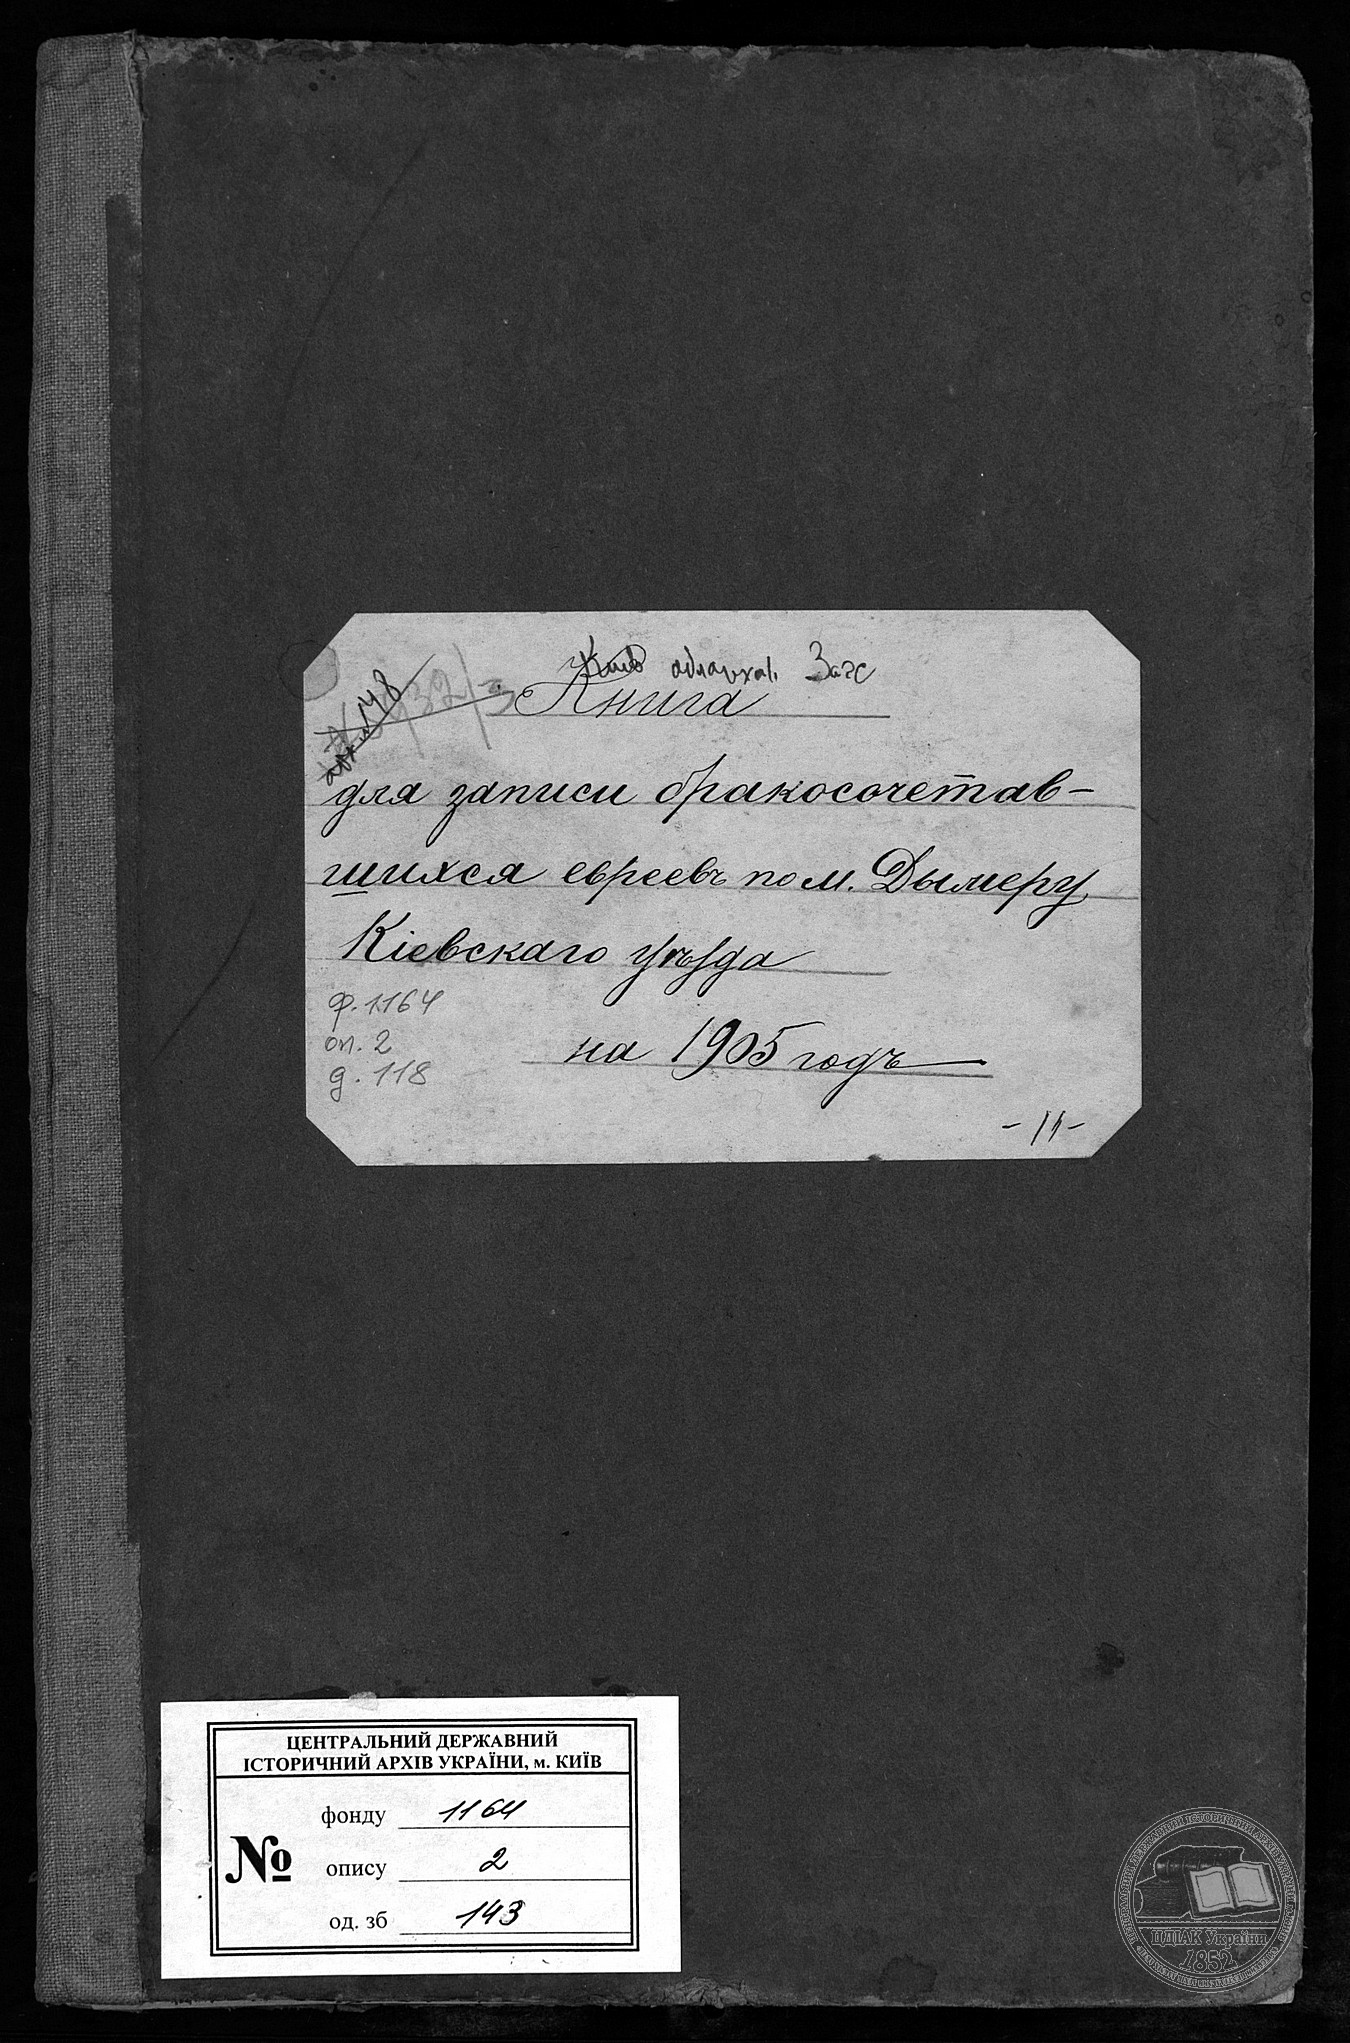 Киев облархив Загс
арх. № 48
Книга
для записи бракосочетав-
шихся евреевъ по м. Дымеру
Кіевскаго уѣзда
на 1905 годъ
ф. 1164
оп. 2
д. 118
ЦЕНТРАЛЬНИЙ ДЕРЖАВНИЙ
ІСТОРИЧНИЙ АРХІВ УКРАЇНИ, м. КИЇВ
№
фонду 1164
опису 2
од. зб 143
ЦДІАК України
1852